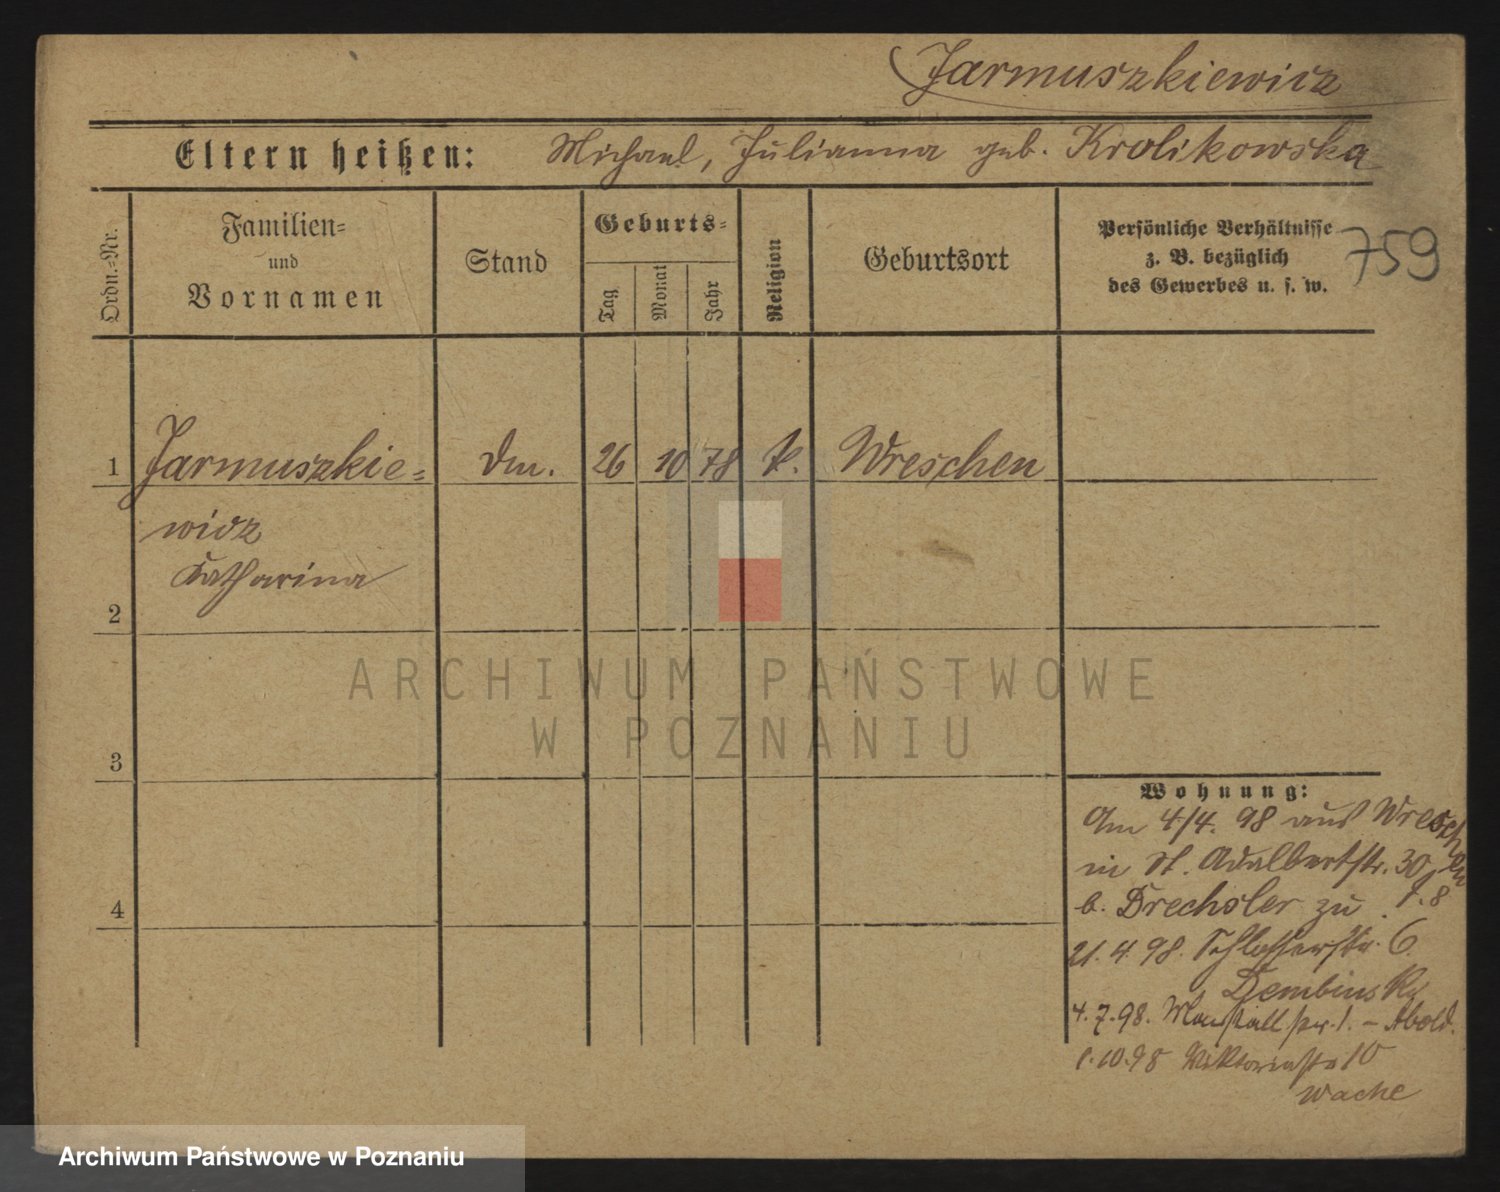 Jarmuszkiewicz
Eltern heißen: Michael, Julianna geb. Krolikowska
Ordn.-Nr.
Familien-
und
Vornamen
Stand
Geburts-
Tag
Monat
Jahr
Religion
Geburtsort
Persönliche Verhältnisse
z. B. bezüglich
des Gewerbes u. s. w.
759
1 Jarmuszkie= Dm. 26 10 78 k. Wreschen
wicz
Katharina
2
3
4
ARCHIWUM PAŃSTWOWE
W POZNANIU
Wohnung:
Am 4/4. 98 aus Wreschen
in St. Adalbertstr. 30
b. Drechsler zu
21.4.98. Schlosserstr. 6
Dembinski
4.7.98. Marstallstr. 1. –
1.10.98 Viktoriastr 10
Wache
Archiwum Państwowe w Poznaniu